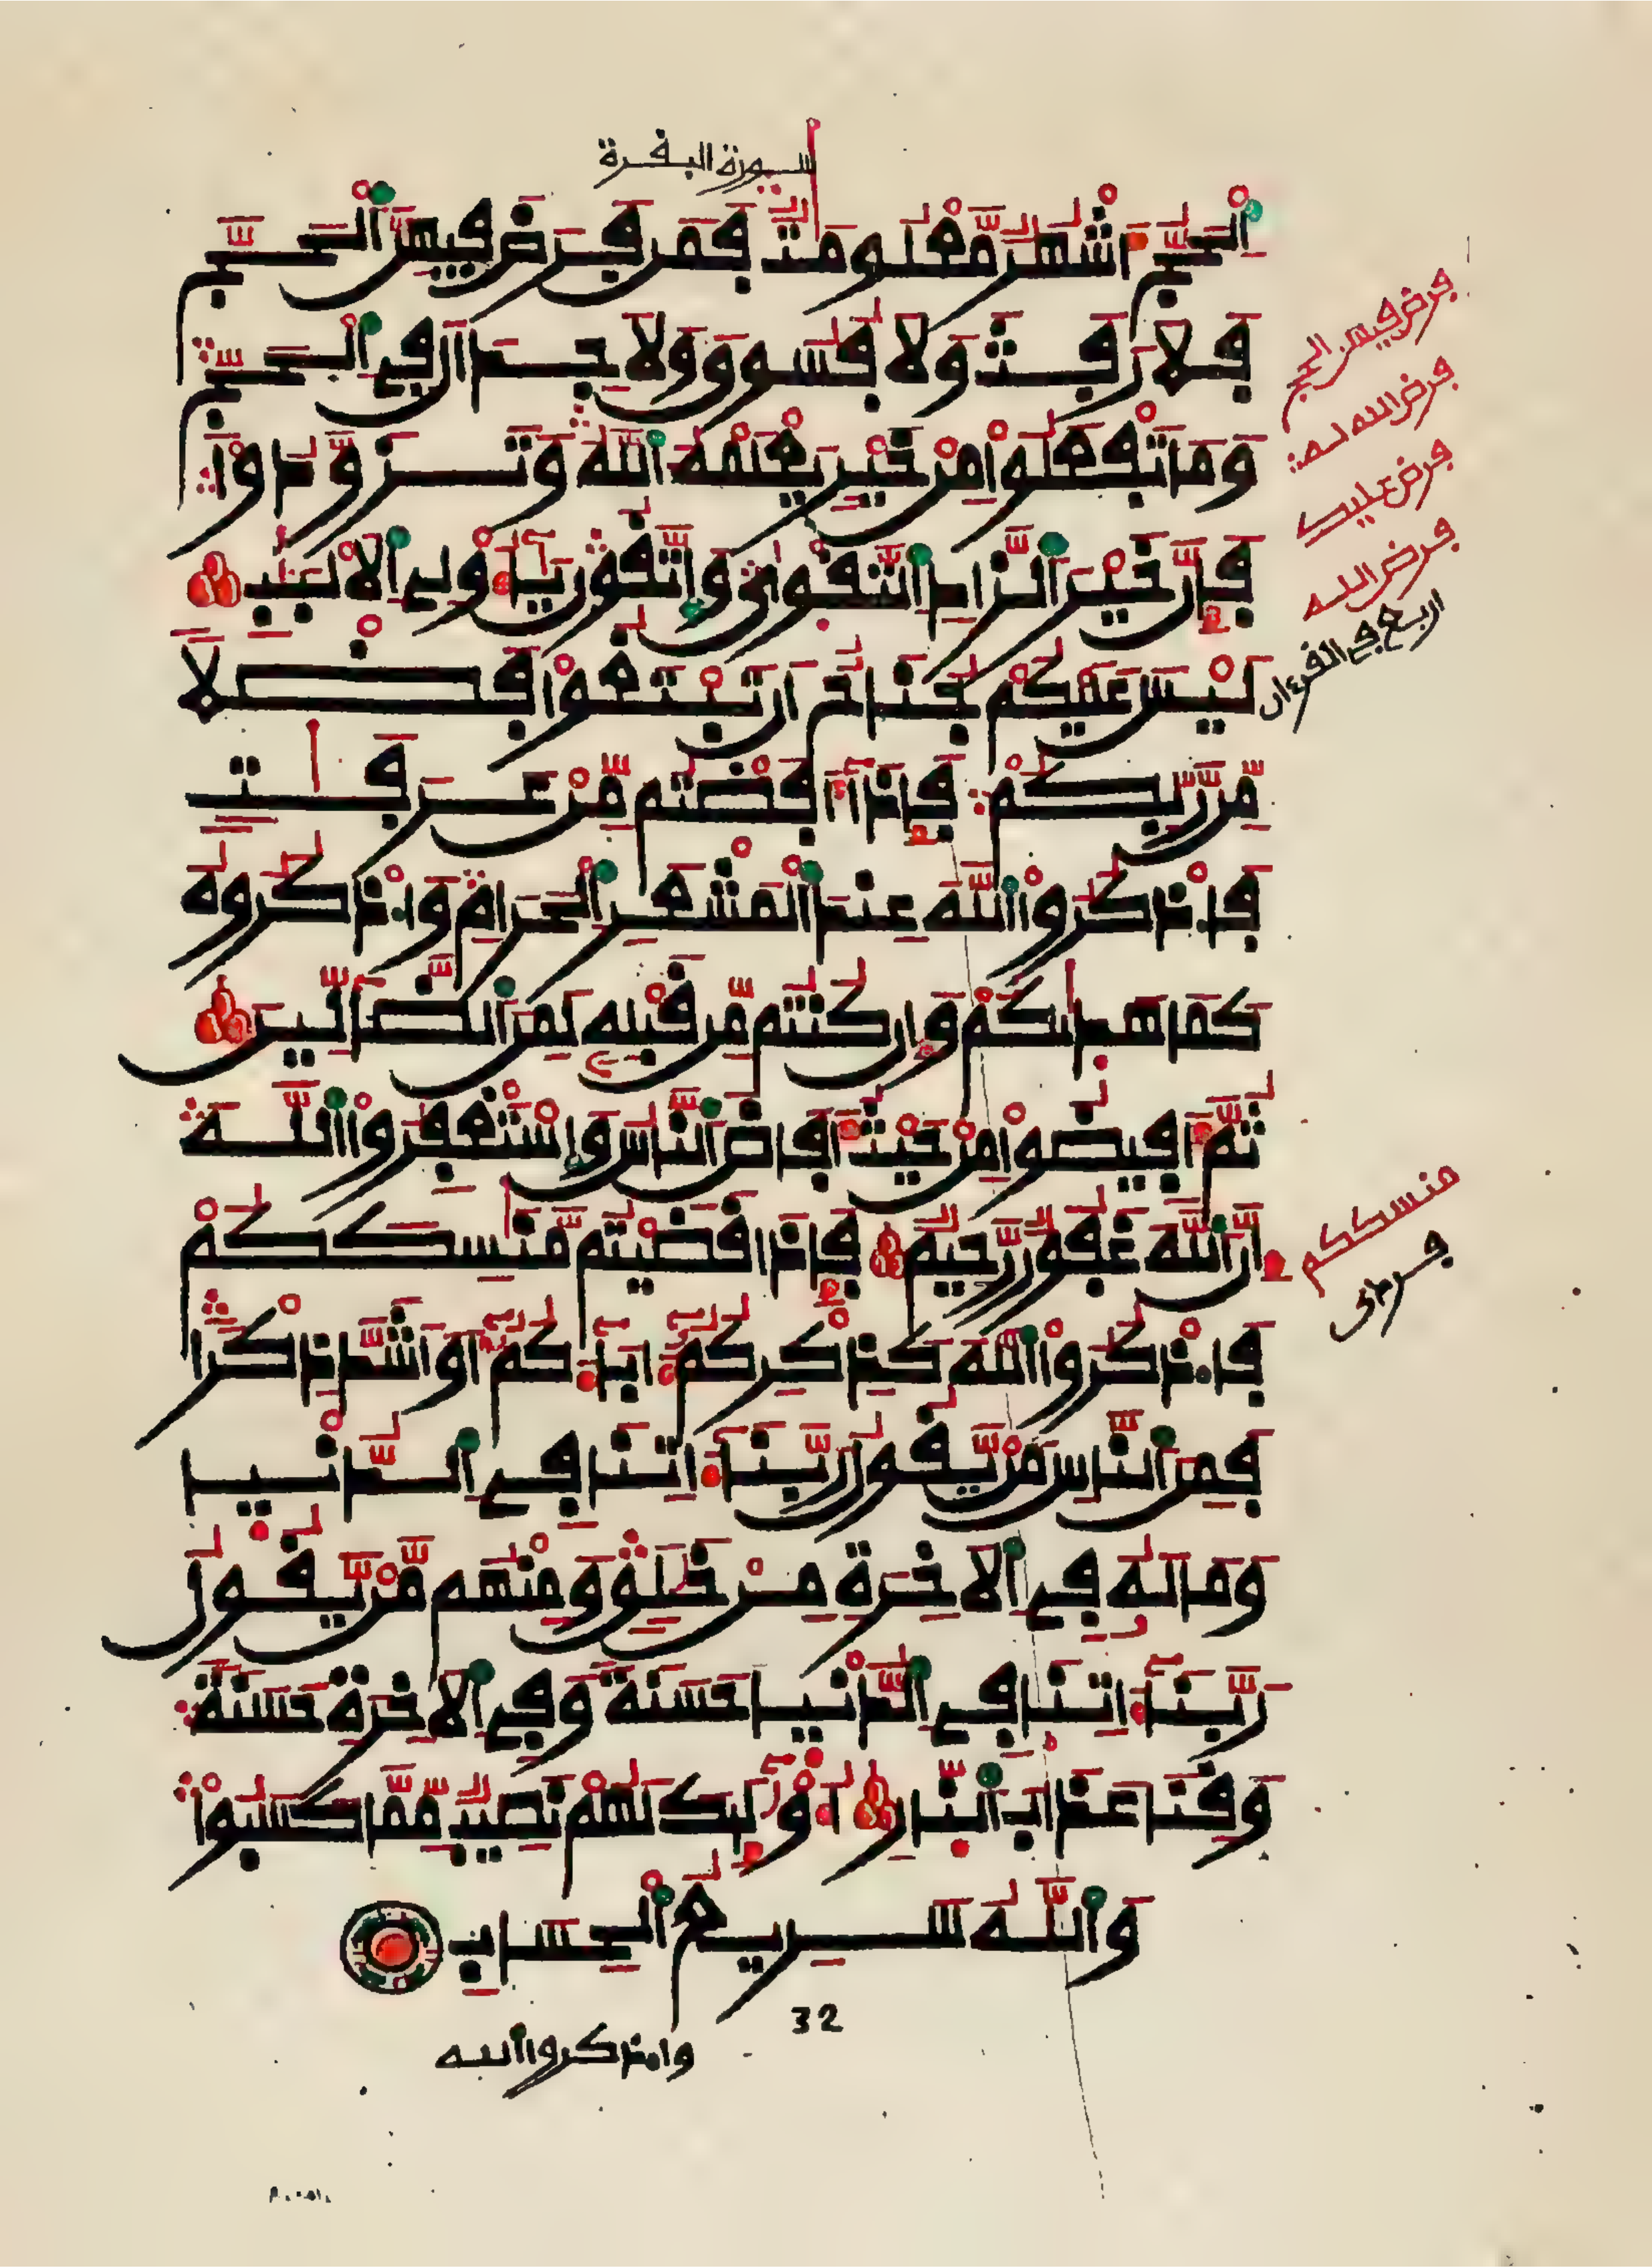 سورة البقرة
اَلْحَجُّ أَشْهُرٌ مَّعْلُومَٰتٌ فَمَن فَرَضَ فِيهِنَّ اَلْحَجَّ
فَلَا رَفَثَ وَلَا فُسُوقَ وَلَا جِدَالَ فِي اِلْحَجِّ
وَمَا تَفْعَلُواْ مِنْ خَيْرٍ يَعْلَمْهُ اُللَّهُ وَتَزَوَّدُواْ
فَإِنَّ خَيْرَ اَلزَّادِ اِلتَّقْوَىٰ وَاتَّقُونِ يَٰٓأُوْلِي اِلْأَلْبَٰبِ
لَيْسَ عَلَيْكُمْ جُنَاحٌ أَن تَبْتَغُواْ فَضْلًا
مِّن رَّبِّكُمْ فَإِذَآ أَفَضْتُم مِّنْ عَرَفَٰتٍ
فَاذْكُرُواْ اُللَّهَ عِندَ اَلْمَشْعَرِ اِلْحَرَامِ وَاذْكُرُوهُ
كَمَا هَدَىٰكُمْ وَإِن كُنتُم مِّن قَبْلِهِ لَمِنَ اَلضَّالِّينَ
ثُمَّ أَفِيضُواْ مِنْ حَيْثُ أَفَاضَ اَلنَّاسُ وَاسْتَغْفِرُواْ اُللَّهَ
إِنَّ اَللَّهَ غَفُورٌ رَّحِيمٌ فَإِذَا قَضَيْتُم مَّنَٰسِكَكُمْ
فَاذْكُرُواْ اُللَّهَ كَذِكْرِكُمُۥٓ ءَابَآءَكُمُۥٓ أَوْ أَشَدَّ ذِكْرًا
فَمِنَ اَلنَّاسِ مَنْ يَّقُولُ رَبَّنَآ ءَاتِنَا فِي اِلدُّنْيَا
وَمَا لَهُ فِي اِلْأٓخِرَةِ مِنْ خَلَٰقٍ وَمِنْهُم مَّنْ يَّقُولُ
رَبَّنَآ ءَاتِنَا فِي اِلدُّنْيَا حَسَنَةً وَفِي اِلْأٓخِرَةِ حَسَنَةً
وَقِنَا عَذَابَ اَلنَّارِ أُوْلَٰٓئِكَ لَهُمْ نَصِيبٌ مِّمَّا كَسَبُواْ
وَاللَّهُ سَرِيعُ اُلْحِسَابِ
32
واذكروا الله
فرض فيهن الحج
فرض الله له
فرض عليك
فرض الله
اربع في القرءان
منسككم